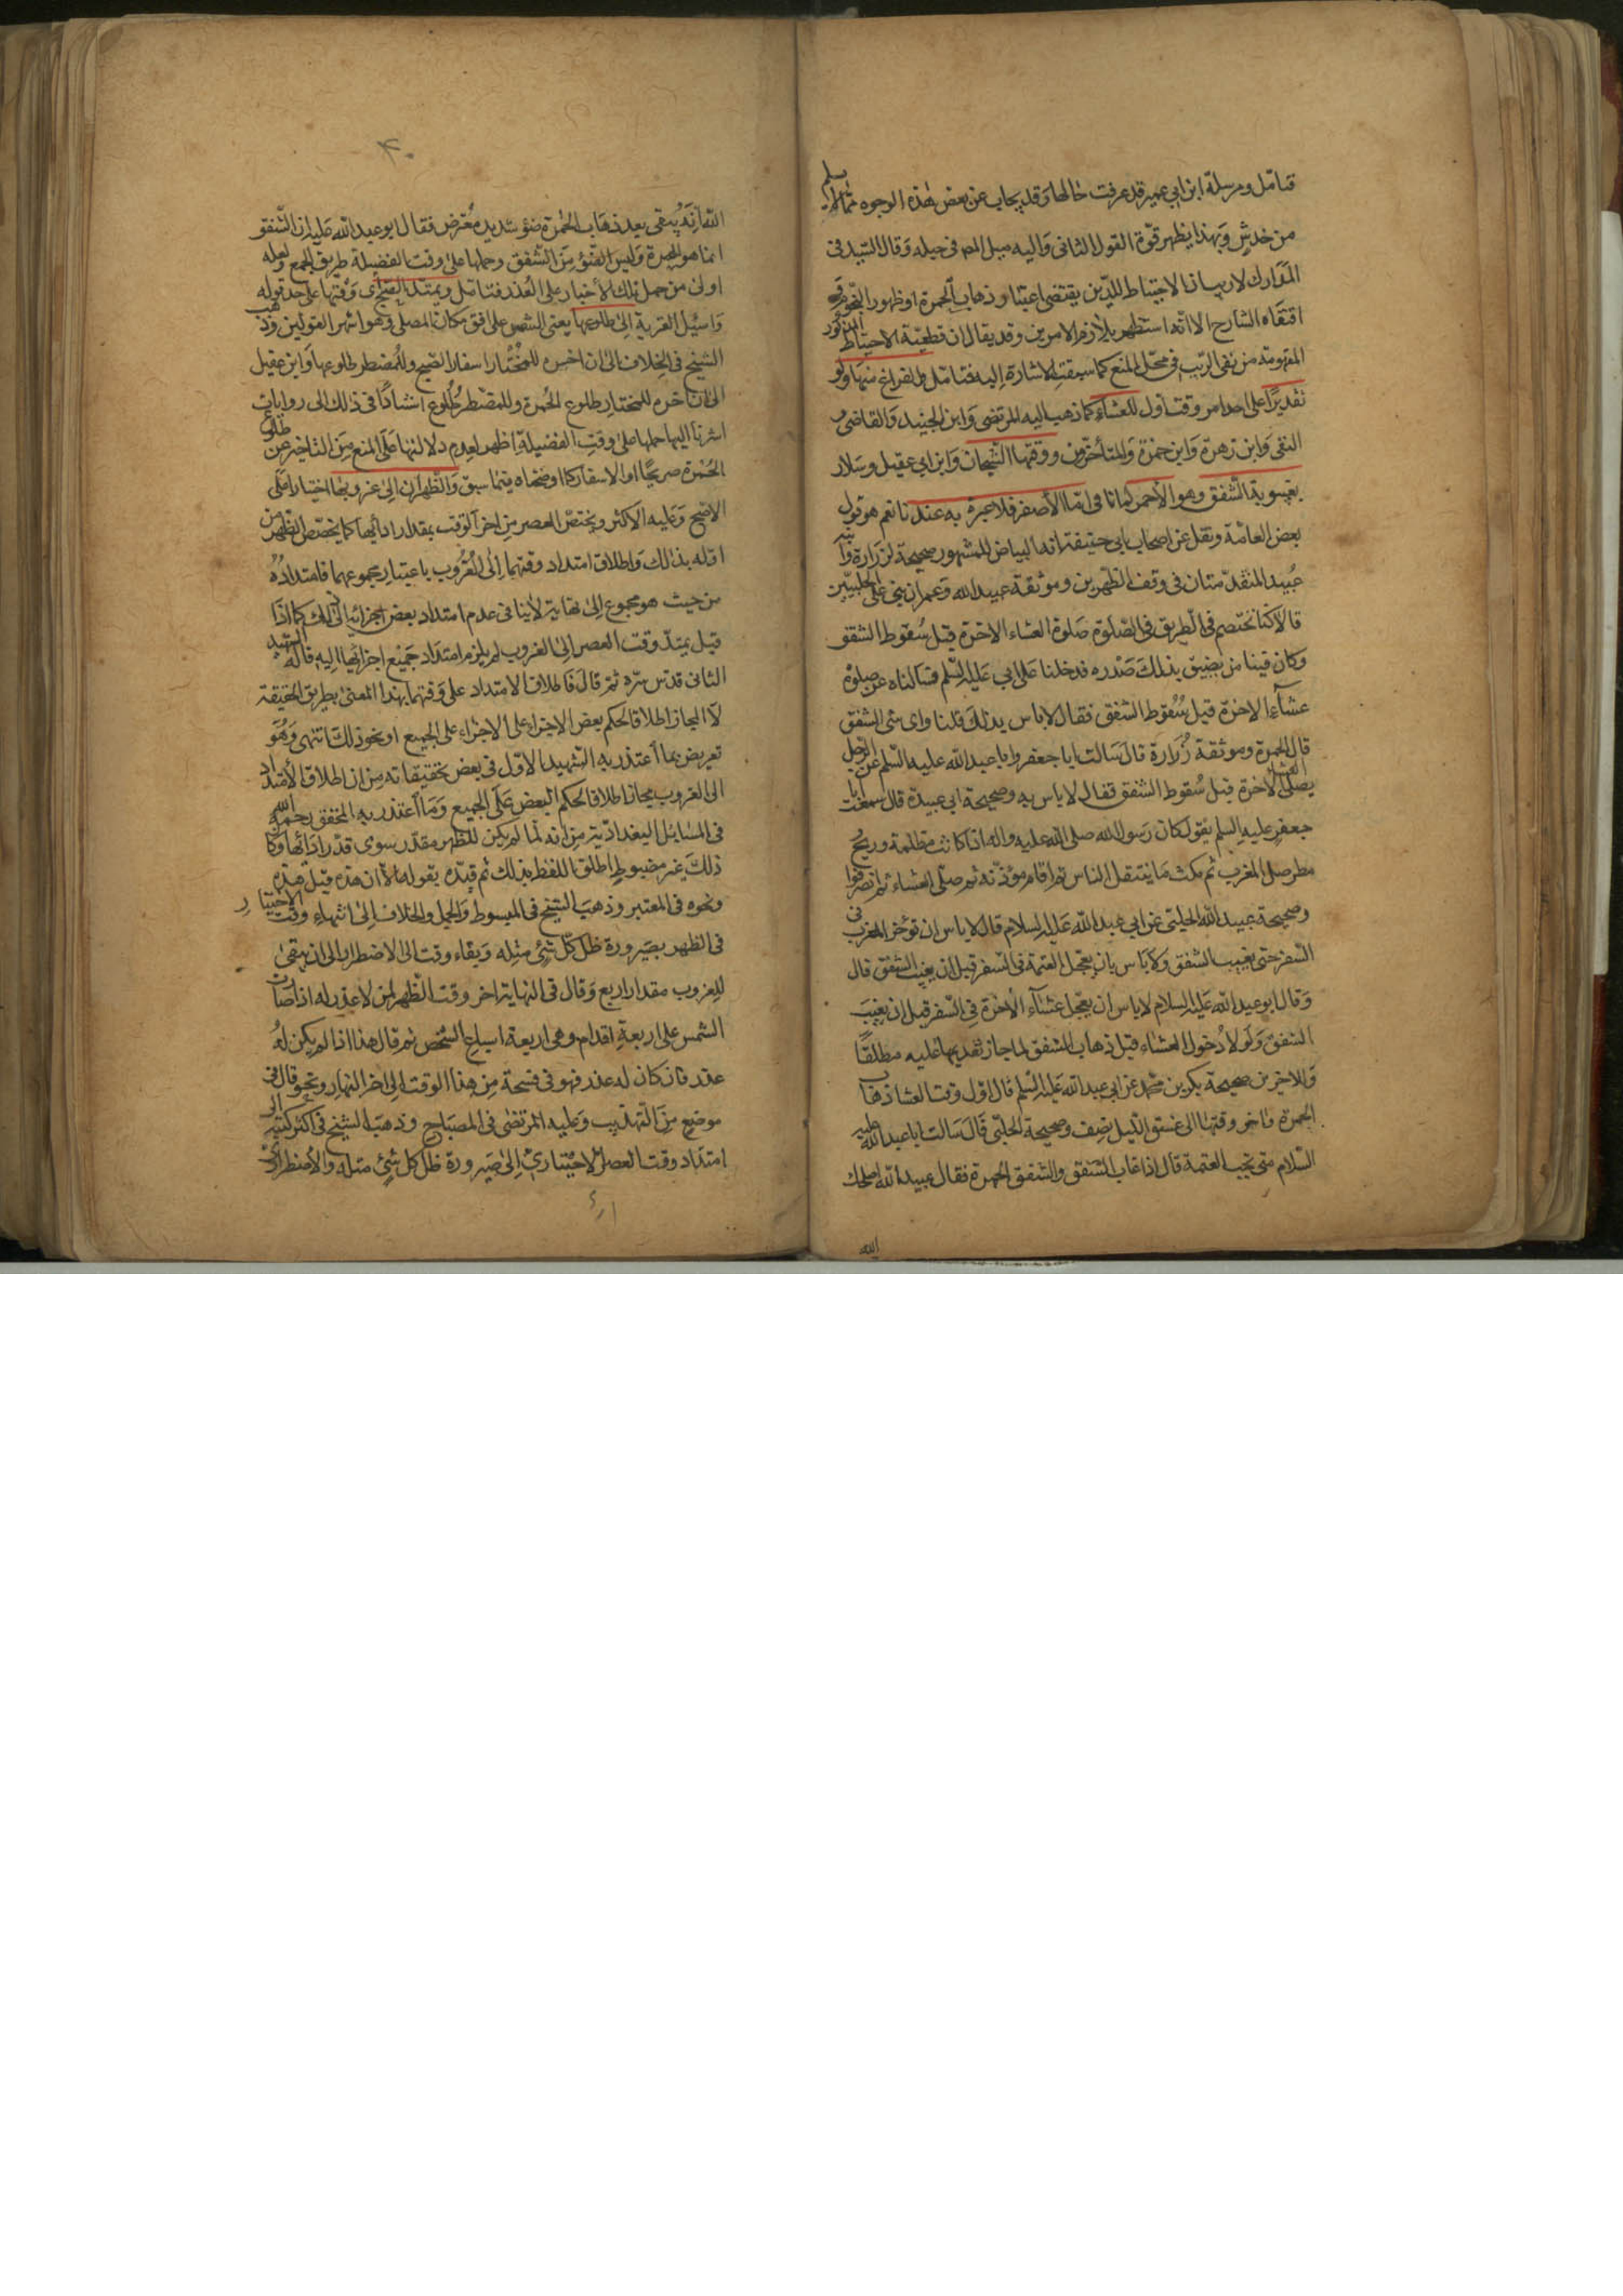 فتامل ومرسلة ابن ابي عمير قد عرفت حالها وقد يجاب عن بعض هذه الوجوه بما لا يسلم
من خدش وبهذا يظهر قوة القول الثاني واليه ميل المصـ في حبله وقال السيد في
المدارك لا ريب ان الاحتياط للدين يقتضي اعتبار ذهاب الحمرة او ظهور النجوم وقد
اقتفاه الشارح الا انه استظهر بلازم الامرين وقد يقال ان قطعية الاحتياط المذكور
المفهومة من نفي الريب في محل المنع كما سبقت الاشارة اليه فتامل والفراغ منها ولو
تقديرا على احد امر وقت اول للعشاء كما ذهب اليه المرتضى وابن الجنيد والقاضي و
التقى وابن زهرة وابن حمزة والمتأخرون ووقتها الشيخان وابن ابي عقيل وسلار
بغيبوبة الشفق وهو الاحمر اما الأصفر فلا عبرة به عندنا نعم هو قول
بعض العامة ونقل عن اصحاب ابي حنيفة انه البياض للمشهور صحيحة لزرارة وابنه
عبيد المتقدمتان في وقف الظهرين وموثقة عبيد الله وعمران بني علي الحلبيين
قالا كنا نختصم في الطريق في الصلوة صلوة العشاء الاخرة قبل سقوط الشفق
وكان فينا من يضيق بذلك صدره فدخلنا على ابي عليه السلم فسالناه عن صلوة
عشاء الاخرة قبل سقوط الشفق فقال لا باس بذلك قلنا واى شى الشفق
قال الحمرة وموثقة زرارة قال سالت ابا جعفر وابا عبد الله عليه السلم عن الرجل
يصلى العشاء الاخرة قبل سقوط الشفق فقال لا باس به وصحيحة ابي عبيدة قال سمعت ابا
جعفر عليه السلم يقول كان رسول الله صلى الله عليه واله اذا كانت مظلمة وريح
مطر صلى المغرب ثم مكث ما يتنفل الناس ثم اقام مؤذنه ثم صلى العشاء ثم انصرفوا
وصحيحة عبيد الله الحلبي عن ابي عبد الله عليه السلام قال لا باس ان تؤخر المغرب في
السفر حتى يغيب الشفق ولا باس بان يعجل العتمة في السفر قبل ان يغيب الشفق قال
وقال ابو عبد الله عليه السلام لا باس ان يعجل عشاء الأخرة في السفر قبل ان يغيب
الشفق ولولا دخول العشاء قبل ذهاب الشفق لما جاز تقديمها عليه مطلقا
والاخرين صحيحة بكر بن محمد عن ابي عبد الله عليه السلم قال اول وقت العشا ذهاب
الحمرة واخر وقتها الى غسق الليل نصف وصحيحة الحلبي قال سالت ابا عبد الله عليه
السلام متى تجب العتمة قال اذا غاب الشفق والشفق الحمرة فقال عبيد الله اصلحك
الله
۴۰
الله انه يبقى بعد ذهاب الحمرة ضؤ شديد معترض فقال ابو عبد الله عليه ان الشفق
انما هو الحمرة وليس الضؤ من الشفق وحملها على وقت الفضيلة طريق الجمع ولعله
اولى من حمل تلك الأخبار على العذر فتامل ويمتد الفجرى وقتها على حد قوله
واسئل القرية الى طلوعها يعني الشمس على افق مكان المصلى وهو اشهر القولين وذهب
الشيخ في الخلاف الى ان اخره للمختار اسفار الصبح وللمضطر طلوعها وابن عقيل
الى ان اخره للمختار طلوع الحمرة وللمضطر طلوع اشنادا في ذلك الى روايات
اشرنا اليها حملها على وقت الفضيلة اظهر لعدم دلالتها على المنع من التاخير عن طلوع
الحمرة صريحا او الاسفار كما اوضحناه فيما سبق والظهران الى غروبها اختيارا على
الاصح وعليه الاكثر ويختص العصر من اخر الوقت بمقدار ادائها كما يختص الظهر من
اوله بذلك واطلاق امتداد وقتهما الى الغروب باعتبار مجموعهما فامتداده
من حيث هو مجموع الى نهاية لا ينافى عدم امتداد بعض اجزائه الى ذلك كما اذا
قيل يمتد وقت العصر الى الغروب لم يلزم امتداد جميع اجزائها اليه قاله الشهيد
الثانى قدس سره ثم قال فاطلاق الامتداد على وقتهما بهذا المعنى بطريق الحقيقة
لا المجاز اطلاقا لحكم بعض الاجزاء على الاجزاء على الجميع او نحو ذلك انتهى وهو
تعريض بما أعتذر به الشهيد الاول في بعض تحقيقاته من ان اطلاق الأمتداد
الى الغروب مجاز اطلاقا لحكم البعض على الجميع وما اعتذر به المحقق رحمه الله
في المسائل البغدادية من انه لما لم يكن للظهر مقدر سوى قدر ادائها وكان
ذلك غير مضبوط اطلق اللفظ بذلك ثم قيده بقوله الا ان هذه قبل هذه
ونحوه في المعتبر وذهب الشيخ في المبسوط والجمل والخلاف الى انتهاء وقت الاختيار
في الظهر بصيرورة ظل كل شئ مثله وبقاء وقت الاضطرار الى ان يبقى
للغروب مقدار اربع وقال في النهاية اخر وقت الظهر لمن لا عذر له اذا صارت
الشمس على اربعة اقدام وهى اربعة اسباع الشخص ثم قال هذا اذا لم يكن له
عذر فان كان له عذر فهو في فسحة من هذا الوقت الى اخر النهار ونحو قال في
موضع من التهذيب وعليه المرتضى في المصباح وذهب الشيخ في اكثر كتبه الى
امتداد وقت العصر الاختيارى الى صيرورة ظل كل شئ مثله والأضطرارى